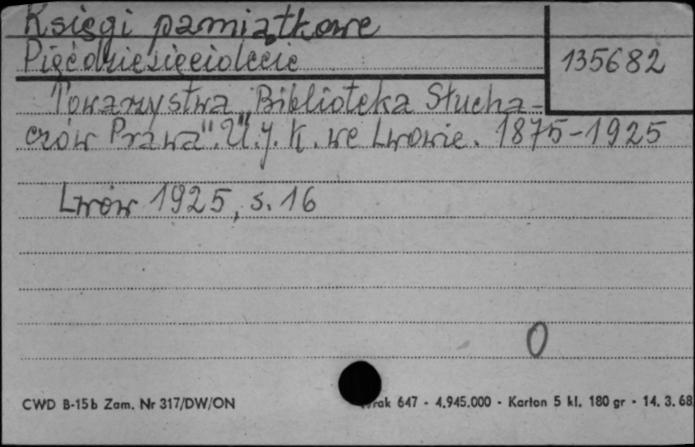 Księgi pamiątkowe
Pięćdziesięciolecie
135682
Towarzystwa „Biblioteka Słucha-
czów Prawa". U.J.K. we Lwowie. 1875-1925
Lwów 1925, s. 16
0
CWD B-15b Zam. Nr 317/DW/ON
rak 647 - 4.945.000 - Karton 5 kl. 180 gr - 14. 3. 68